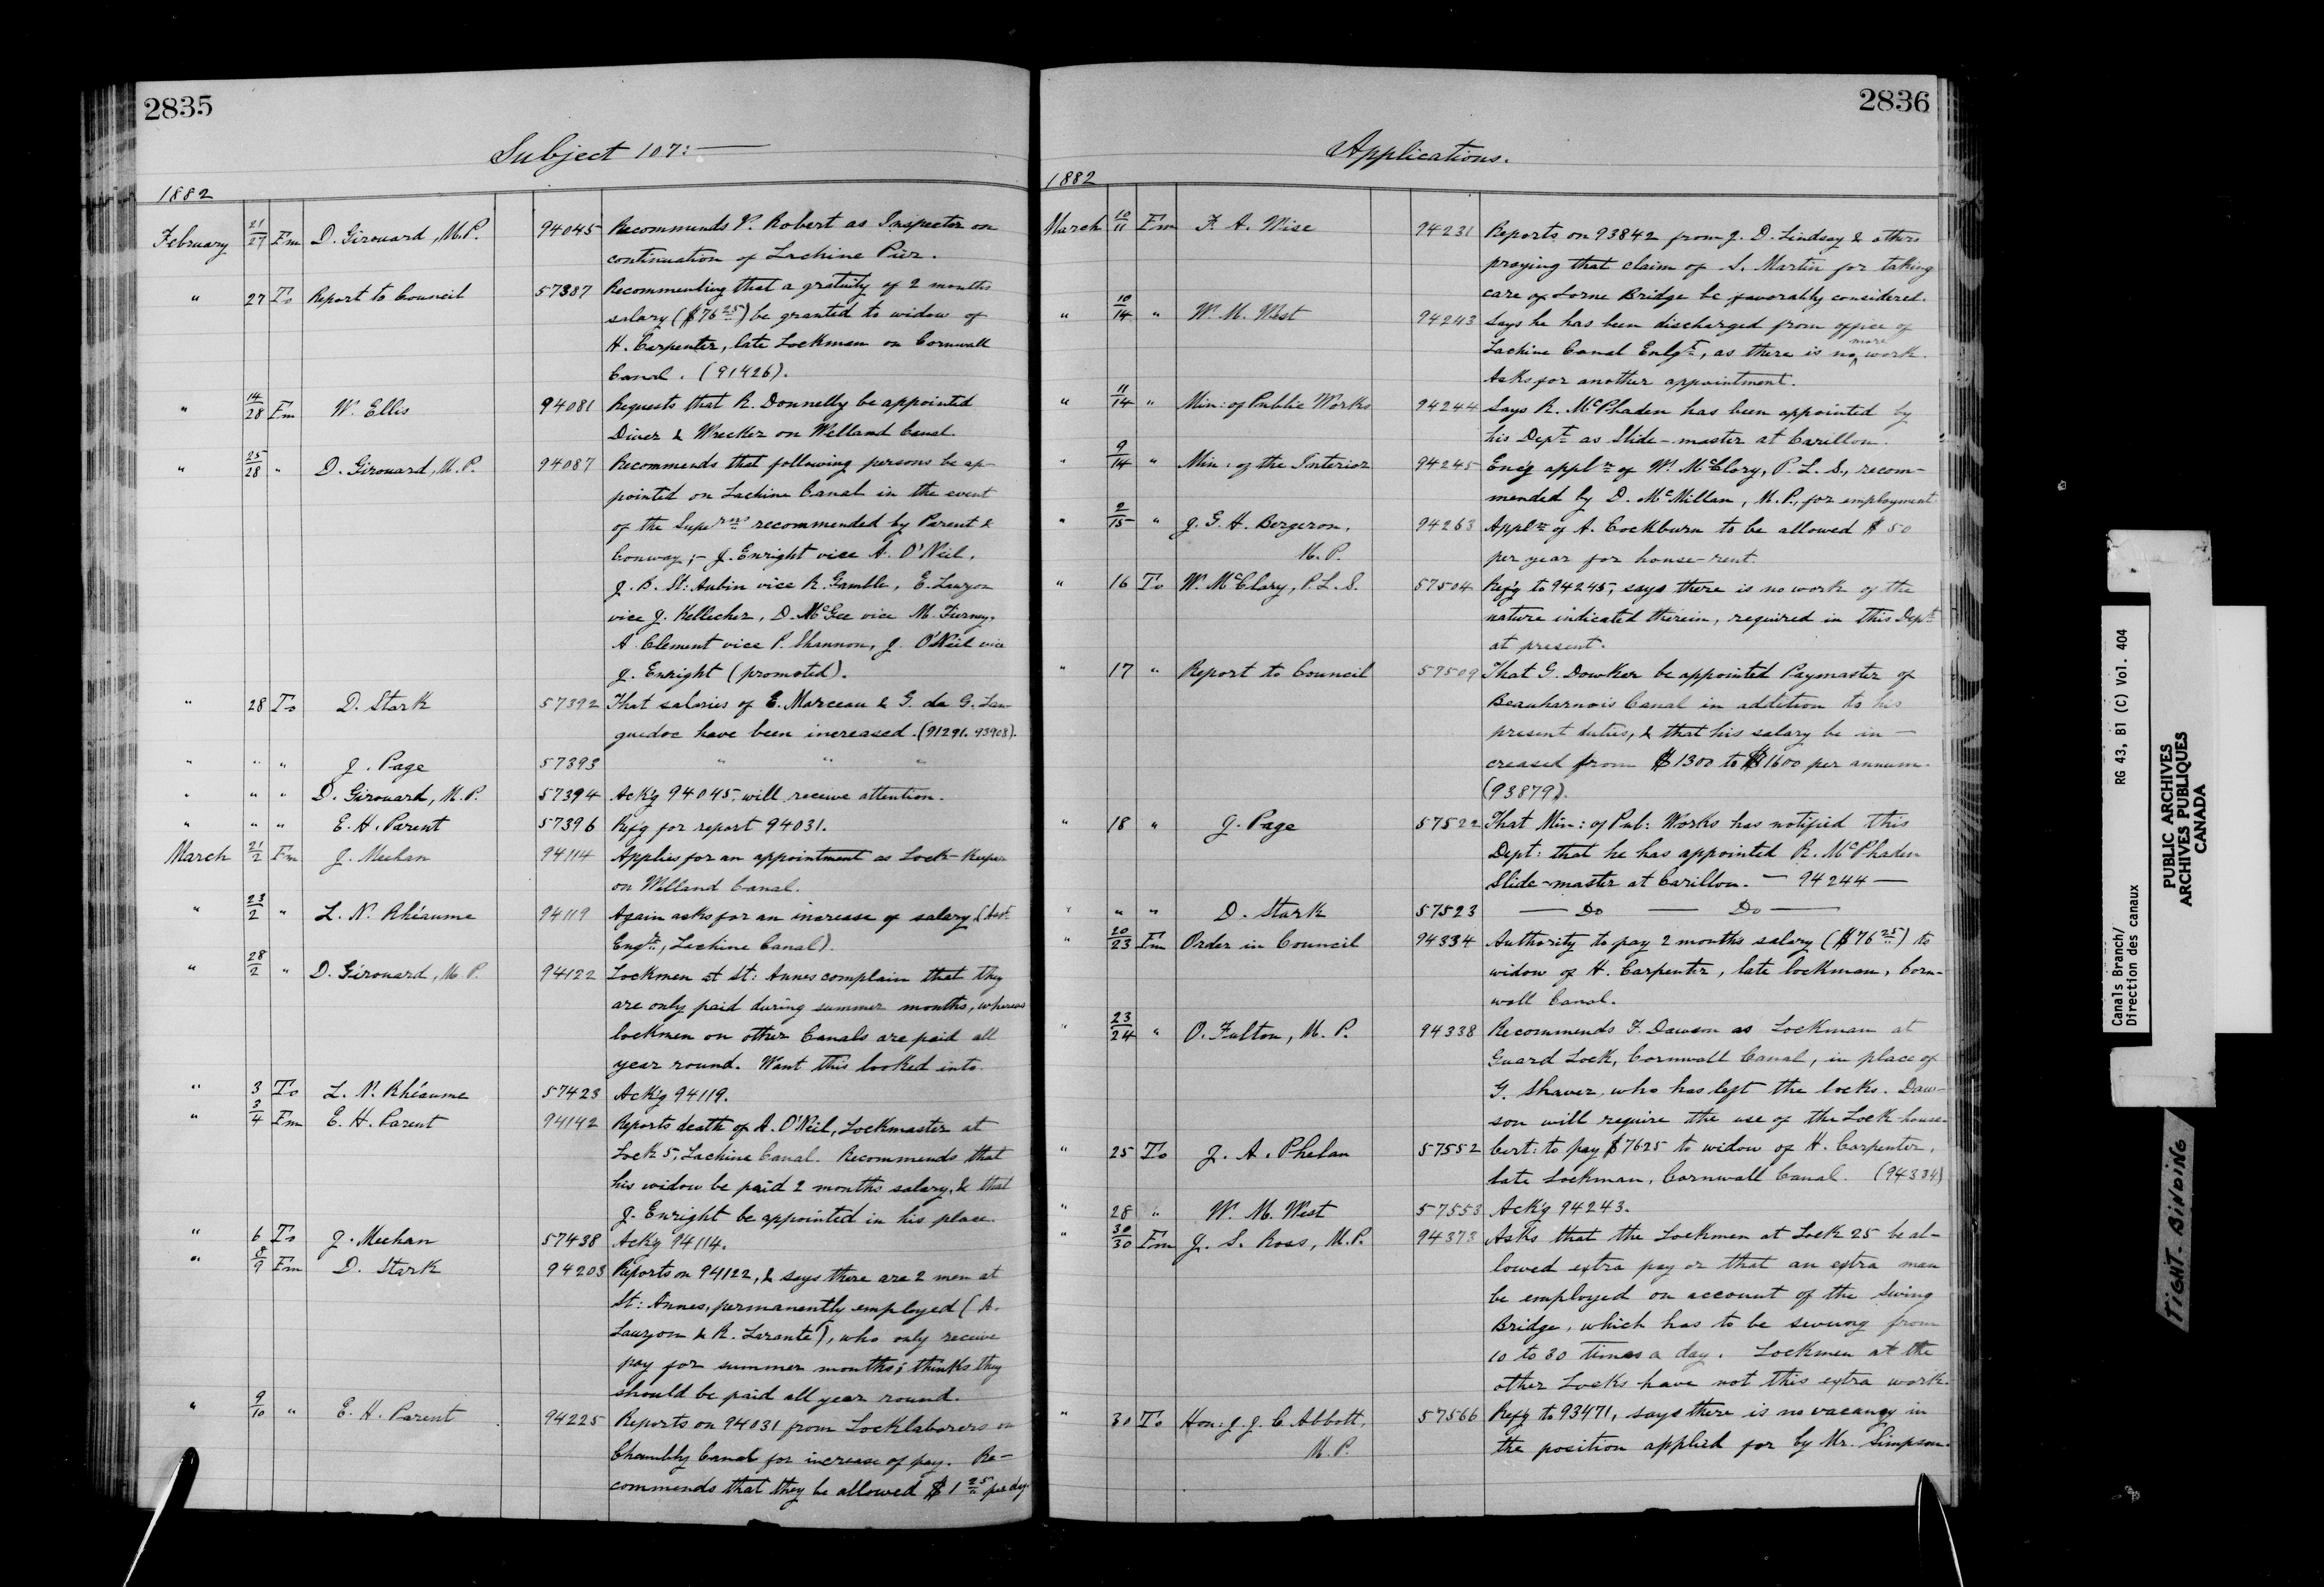 2835
Subject 107:—
1882
February 21/27 Fm D. Girouard, M.P. 94045 Recommends P. Robert as Inspector on
continuation of Lachine Pier.
" 27 To Report to Council 57387 Recommending that a gratuity of 2 months
salary ($76 25) be granted to widow of
H. Carpenter, late Lockman on Cornwall
Canal. (91426).
" 14/28 Fm W. Ellis 94081 Requests that R. Donnelly be appointed
Diver & Wrecker on Welland Canal.
" 25/28 " D. Girouard, M.P. 94087 Recommends that following persons be ap-
pointed on Lachine Canal in the event
of the Superns recommended by Parent &
Conway;- J. Enright vice A. O'Neil,
J. B. St: Aubin vice R. Gamble, E. Lauzon
vice J. Kellecher, D. McGee vice M. Tierney,
A Clement vice P. Shannon, J. O'Neil vice
J. Enright (promoted).
" 28 To D. Stark 57392 That salaries of E. Marceau & G. de G. Lan-
guedoc have been increased. (91291. 93908).
" " " J. Page 57393 " " "
" " " D. Girouard, M.P. 57394 Ack'g 94045, will receive attention.
" " " E. H. Parent 57396 Ref'g for report 94031.
March 21/2 Fm J. Meehan 94114 Applies for an appointment as Lock-Keeper
on Welland Canal.
" 23/2 " L. N. Rhéaume 94119 Again asks for an increase of salary (Asst
Engr, Lachine Canal).
" 28/2 " D. Girouard, M.P. 94122 Lockmen at St: Annes complain that they
are only paid during summer months, whereas
lockmen on other Canals are paid all
year round. Want this looked into.
" 3 To L. N. Rhéaume 57423 Ack'g 94119.
" 3/4 Fm E. H. Parent 94142 Reports death of A. O'Neil, Lockmaster at
Lock 5, Lachine Canal. Recommends that
his widow be paid 2 months salary, & that
J. Enright be appointed in his place.
" 6 To J. Meehan 57438 Ack'g 94114.
" 8/9 Fm D. Stark 94203 Reports on 94122, & says there are 2 men at
St: Annes, permanently employed (A.
Lauzon & R. Larante), who only receive
pay for summer months; thinks they
should be paid all year round.
" 9/10 " E. H. Parent 94225 Reports on 94031 from Locklaborers on
Chambly Canal for increase of pay. Re-
commends that they be allowed $1 25 per day.
2836
Applications.
1882
March 10/11 Fm F. A. Wise 94231 Reports on 93842 from J. D. Lindsay & others
praying that claim of S. Martin for taking
care of Lorne Bridge be favorably considered.
" 10/14 " W. M. West 94243 Says he has been discharged from office of
Lachine Canal Enlgt, as there is no more work.
Asks for another appointment.
" 11/14 " Min: of Public Works 94244 Says R. McPhaden has been appointed by
his Dept as Slide-master at Carillon.
" 9/14 " Min: of the Interior 94245 Enc'g appln of W. McClory, P. L. S., recom-
mended by D. McMillan, M.P., for employment
" 2/15 " J. G. H. Bergeron, 94263 Appln of A. Cockburn to be allowed $50
M.P. per year for house-rent.
" 16 To W. McClary, P.L.S. 57504 Ref'g to 94245, says there is no work of the
nature indicated therein, required in this Dept
at present.
" 17 " Report to Council 57509 That G. Dowker be appointed Paymaster of
Beauharnois Canal in addition to his
present duties, & that his salary be in-
creased from $1300 to $1600 per annum.
(93879).
" 18 " J. Page 57522 That Min: of Pub: Works has notified this
Dept: that he has appointed R. McPhaden
Slide-master at Carillon. — 94244 —
" " " D. Stark 57523 — Do — Do —
" 20/23 Fm Order in Council 94334 Authority to pay 2 months salary ($76 25) to
widow of H. Carpenter, late lockman, Corn-
wall Canal.
" 23/24 " O. Fulton, M.P. 94338 Recommends F. Dawson as Lockman at
Guard Lock, Cornwall Canal, in place of
G. Shaver, who has left the locks. Daw-
son will require the use of the Lock-house.
" 25 To J. A. Phelan 57552 Cert: to pay $7625 to widow of H. Carpenter,
late Lockman, Cornwall Canal. (94334)
" 28 " W. M. West 57553 Ack'g 94243.
" 30/30 Fm J. S. Ross, M.P. 94373 Asks that the Lockmen at Lock 25 be al-
lowed extra pay or that an extra man
be employed on account of the Swing
Bridge, which has to be swung from
10 to 30 times a day. Lockmen at the
other Locks have not this extra work.
" 30 To Hon: J. J. C. Abbott, 57566 Ref'g to 93471, says there is no vacancy in
M.P. the position applied for by Mr. Simpson.
Canals Branch/ RG 43, B1 (C) Vol. 404
Direction des canaux
PUBLIC ARCHIVES
ARCHIVES PUBLIQUES
CANADA
TIGHT BINDING